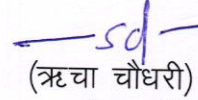 sd
(ऋचा चौधरी)